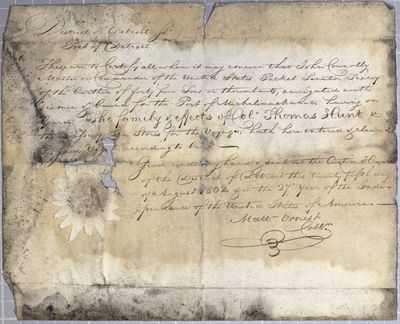 District of Detroit
Port of Detroit
These are to Certify all whom it may concern that John Connolly
Master or Commander of the United States Packet
of the Burthen of forty five Tons or thereabouts, navigated with
for the Port of Michilimackinac having on
Board The family & effects of Colo. Thomas Hunt &
Stores for the Voyage, hath here entered & cleared
according to law
Given under my hand & seal at the Custom House
of the District of Detroit this twenty fifth day
of August 1802 & in the 27th Year of the Inde-
pendence of the United States of America.
Matt. Ernest
Collr.